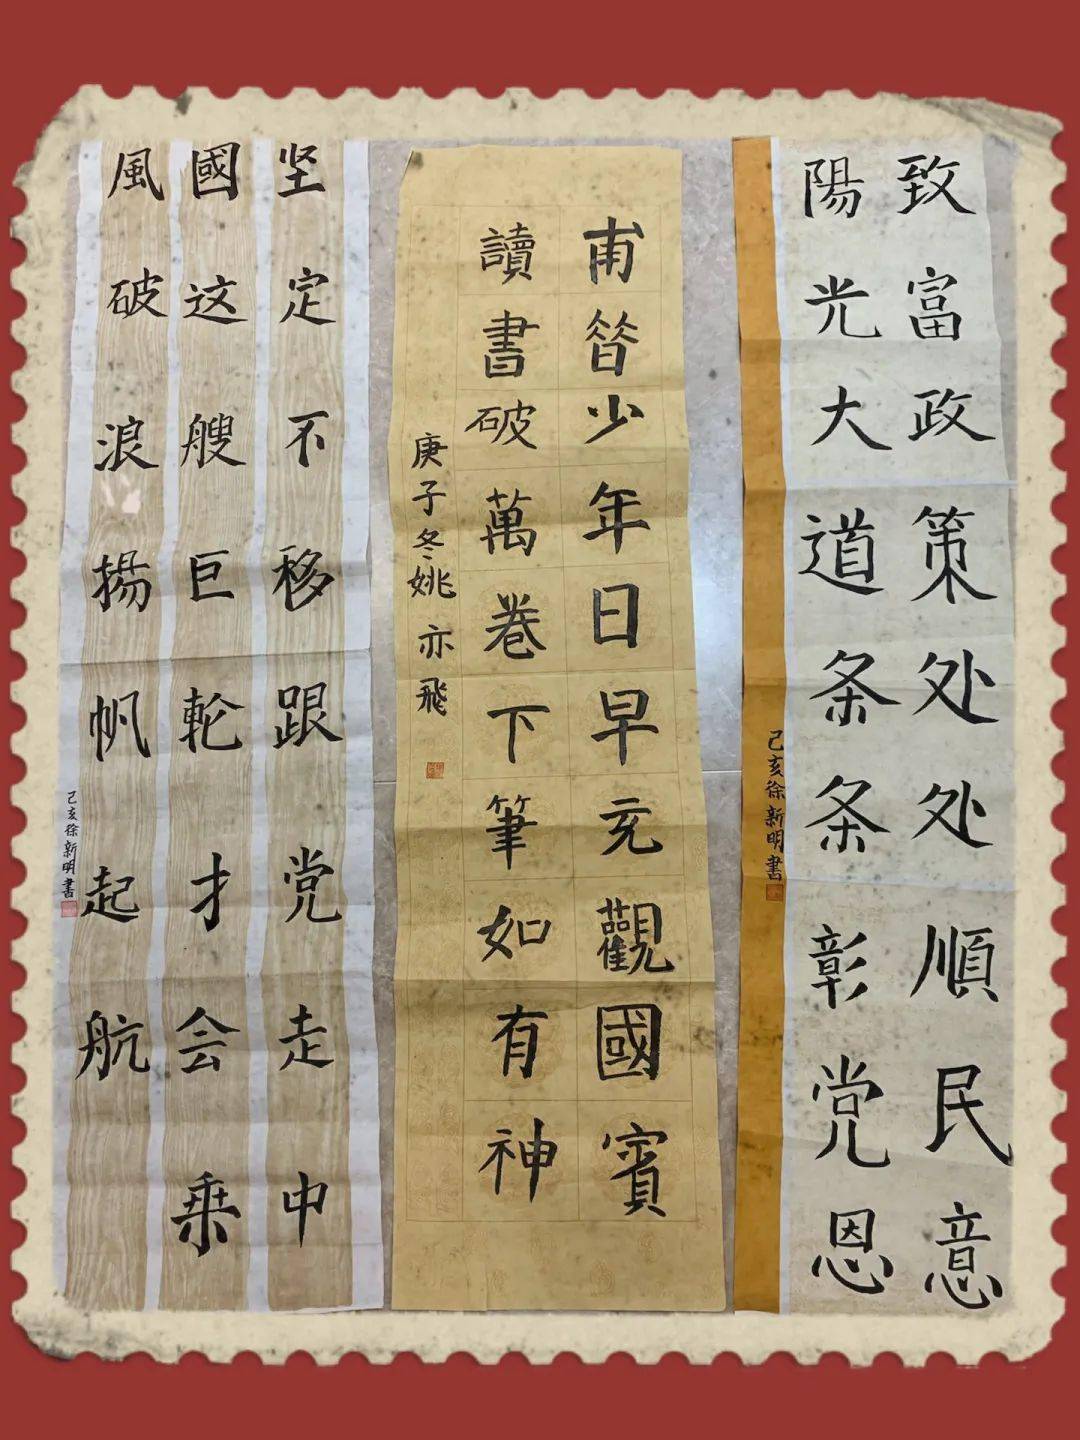 致富政策处处順民意
陽光大道条条彰党恩
己亥徐新明書
甫昔少年日早充觀國賓
讀書破萬卷下筆如有神
庚子冬姚亦飛
坚定不移跟党走中
國这艘巨輪才会乘
風破浪揚帆起航
己亥徐新明書